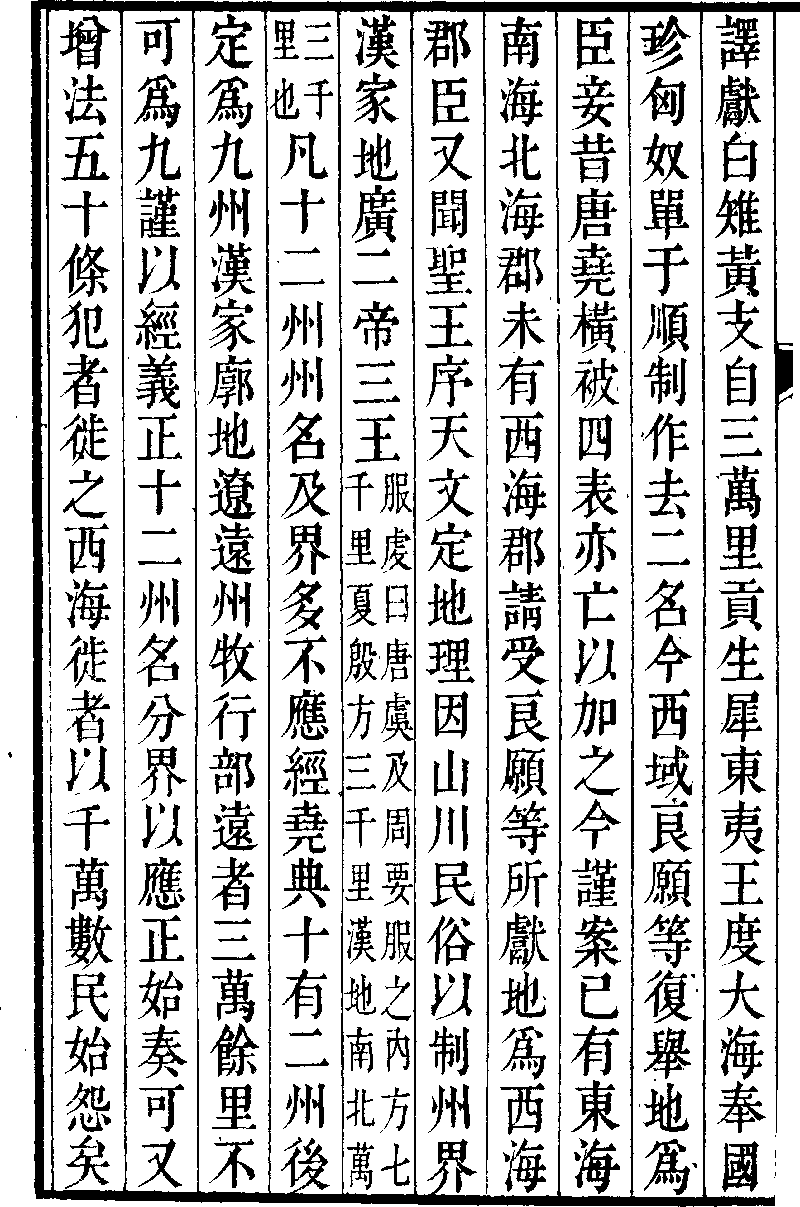 譯獻白雉黃支自三萬里貢生犀東夷王度大海奉國
珍匈奴單于順制作去二名今西域良願等復舉地爲
臣妾昔唐堯橫被四表亦亡以加之今謹案已有東海
南海北海郡未有西海郡請受良願等所獻地爲西海
郡臣又聞聖王序天文定地理因山川民俗以制州界
漢家地廣二帝三王服虔曰唐虞及周要服之內方七千里夏殷方三千里漢地南北萬
三千里也凡十二州州名及界多不應經堯典十有二州後
定爲九州漢家廓地遼遠州牧行部遠者三萬餘里不
可爲九謹以經義正十二州名分界以應正始奏可又
增法五十條犯者徙之西海徙者以千萬數民始怨矣